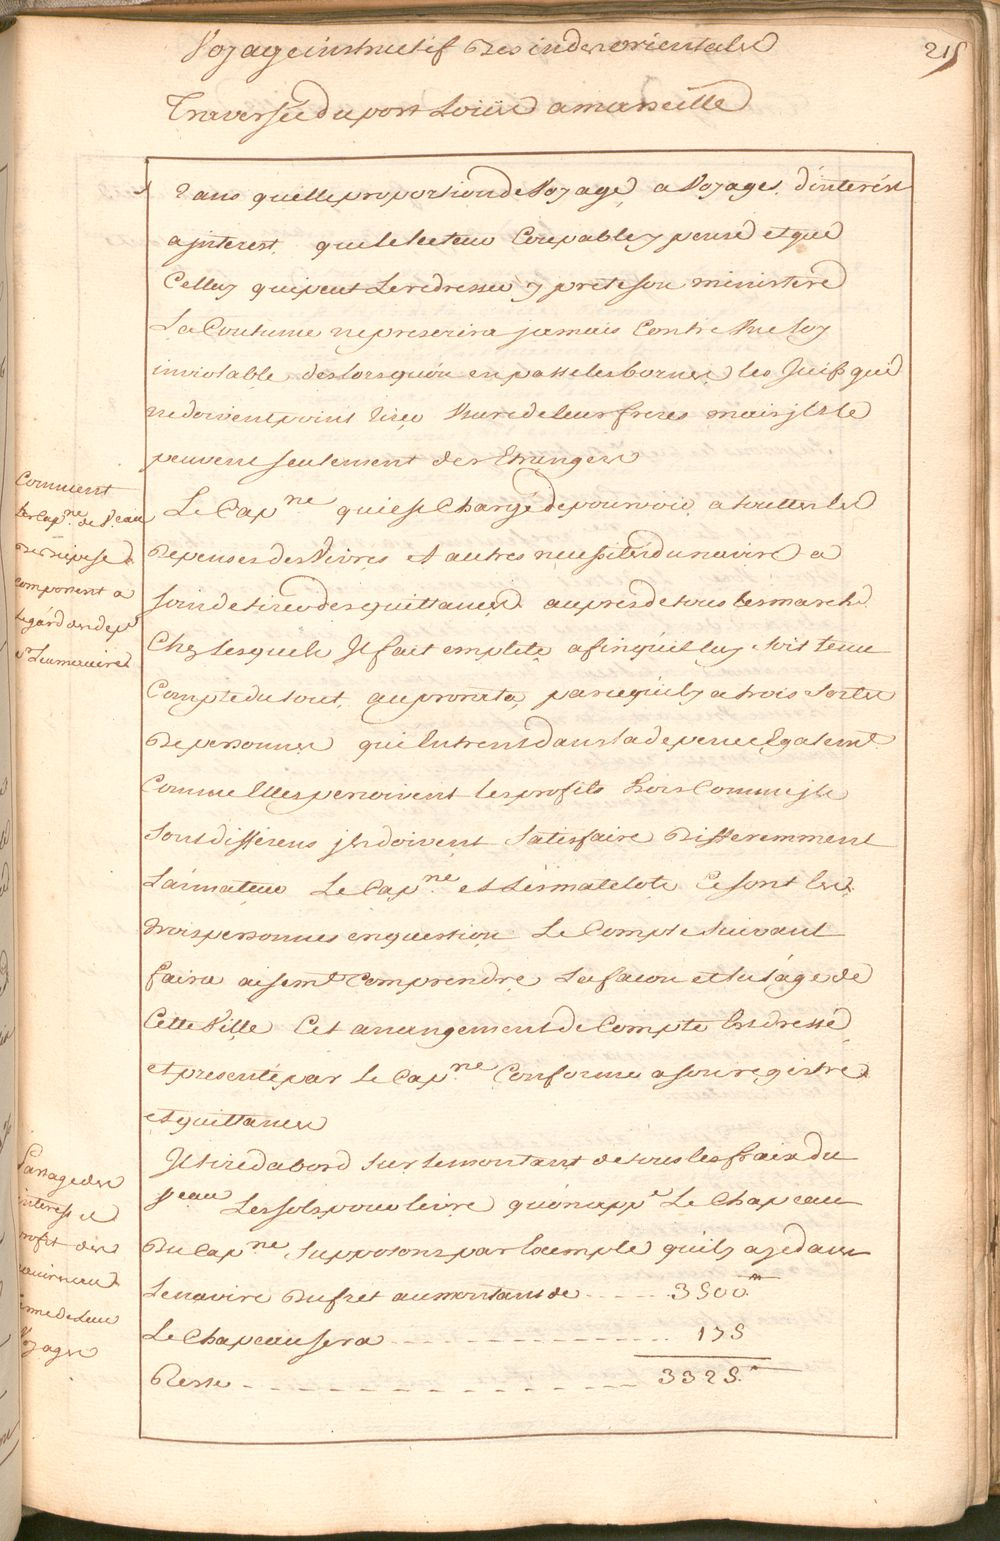 Voyage instructif Des indes orientales
215
Traversée du port Loüis a marseille
Dans quelle proportion de Voyage a Voyage, d'interest
a jnterest, que le lecteur Coupable y pense et que
Celluy qui peut Le redresser y prete son ministere
La Coutume ne prescrira jamais Contre Une loy
inviolable des lors qu'on en passe les bornes, les Juifs qui
ne doivent point User Usure de leurs freres mais jls le
peuvent seulement des Etrangers
Comment
Les Capnes de Veau
Des
comportent a
legard des depces
et L'armaires
Le Capne qui est Chargé de pourvoir a toutes les
Depenses des Vivres et autres necessités du navire a
soin de tirer des quittances aupres de tous les marchds
Chez lesquels Jl fait emplete afin qu'il luy soit tenu
Compte du tout, au prorata, parce qu'il y a trois sortes
De personnes qui Entrent dans la depense Egalemt
Comme Elles percoivent les profits Trois Comme jls
sont differens jls doivent Satisfaire Differemment
L'armateur Le Capne et Les matelots Ce sont les
trois personnes en question Le Compte suivant
faira aisemt Comprendre La facon et lusage de
Cette Ville Cet arrangement de Compte Est dressé
et presenté par Le Capne Conforme a son registre
et quittances
Partage des
interest et
profit des
navires au
terme de Leur
Voyages
Jl tire d'abord sur le montant de tous les fraix du
Veau Les sols pour livre qu'on appe Le Chapeau
Du Capne Supposons par Exemple qu'il y aye dans
Le navire Du fret au montant de ----- 3500
Le Chapeau sera ------------ 175
Reste ------------ 3325